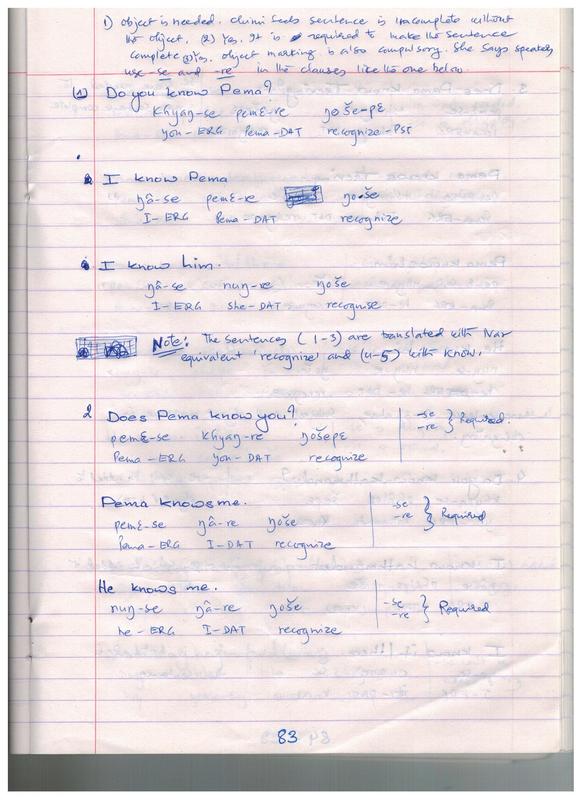 1) object is needed. Chimi feels sentence is uncomplete without
the object, (2) Yes, It is required to make the sentence
complete (3) Yes, object marking is also compulsory. She says speakers
use -se and -re in the clauses like the one below.
(1) Do you know Pema?
khyaŋ-se pemɛ-re ŋošе-pɛ
you-ERG Pema-DAT recognize-PST
I know Pema
ŋâ-se pemɛ-re ŋoše
I-ERG Pema-DAT recognize
I know him.
ŋâ-se nuŋ-re ŋoše
I-ERG she-DAT recognise
Note: The sentences (1-3) are translated with Nar
equivalent 'recognize' and (4-5) with know.
2 Does Pema know you?
pemɛ-se khyaŋ-re ŋošepɛ
Pema-ERG you-DAT recognize
-se
-re } Required.
Pema knows me.
pemɛ-se ŋâ-re ŋoše
Pema-ERG I-DAT recognize
-se
-re } Required
He knows me.
nuŋ-se ŋâ-re ŋoše
he-ERG I-DAT recognize
-se
-re } Required
83